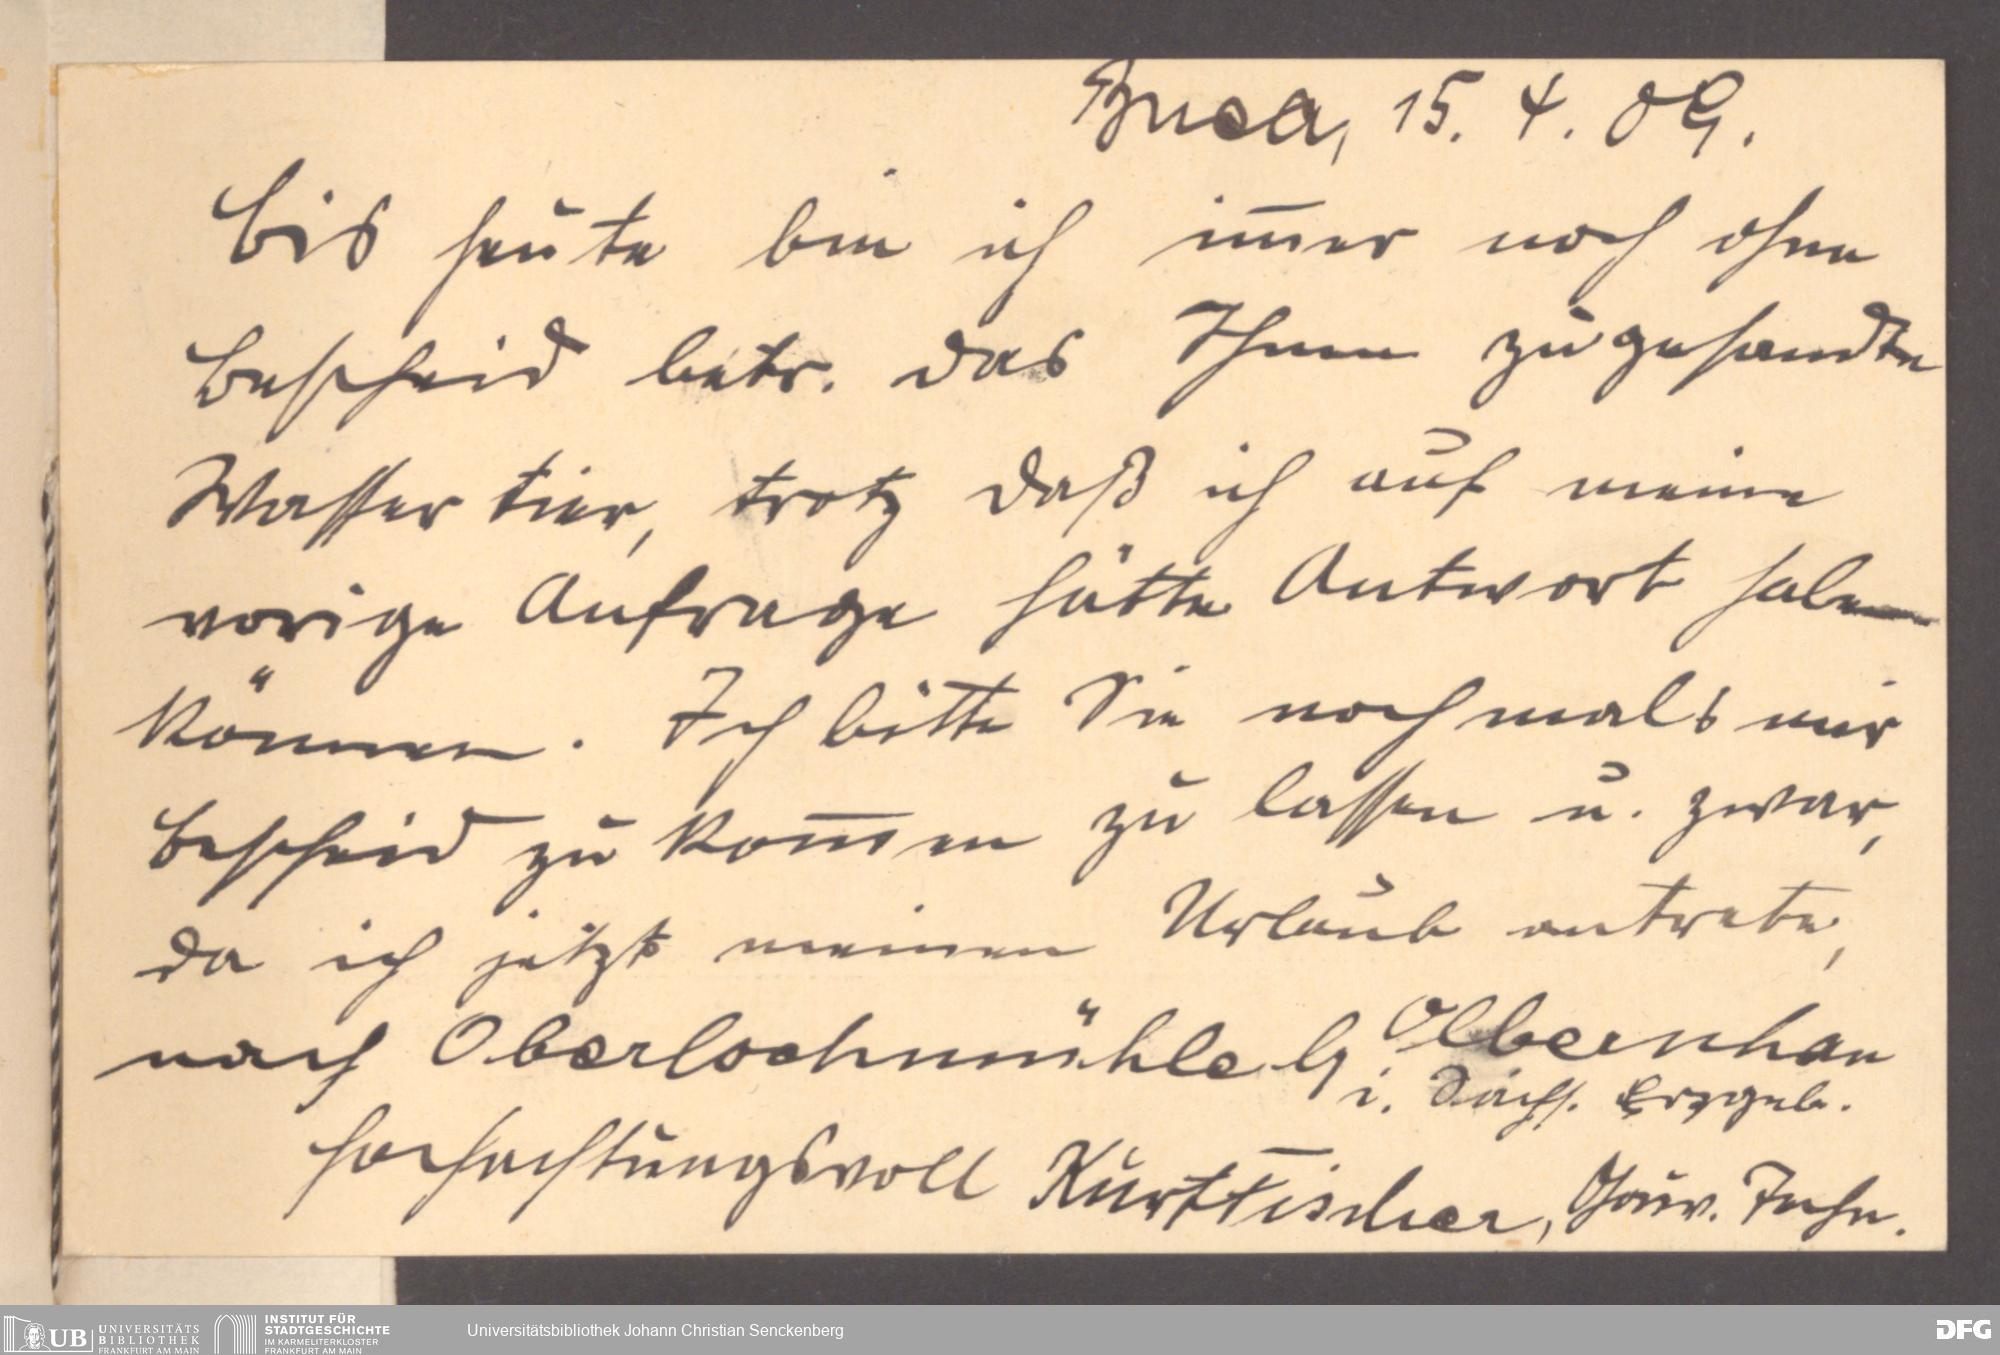 Buea, 15. 4. 09.
Bis heute bin ich im̅er noch ohne
Bescheid betr. das Ihnen zugesandte
Wassertier, trotz daß ich auf meine
vorige Anfrage hätte Antwort haben
können. Ich bitte Sie nochmals mir
Bescheid zu kom̅en zu lassen u. zwar,
da ich jetzt meinen Urlaub antrete,
nach Oberlochmühle b/ Olbernhau
i. Sächs. Erzgeb.
Hochachtungsvoll Kurt Fischer, Gouv. Techn.
UB UNIVERSITÄTS
BIBLIOTHEK
FRANKFURT AM MAIN
INSTITUT FÜR
STADTGESCHICHTE
IM KARMELITERKLOSTER
FRANKFURT AM MAIN
Universitätsbibliothek Johann Christian Senckenberg
DFG